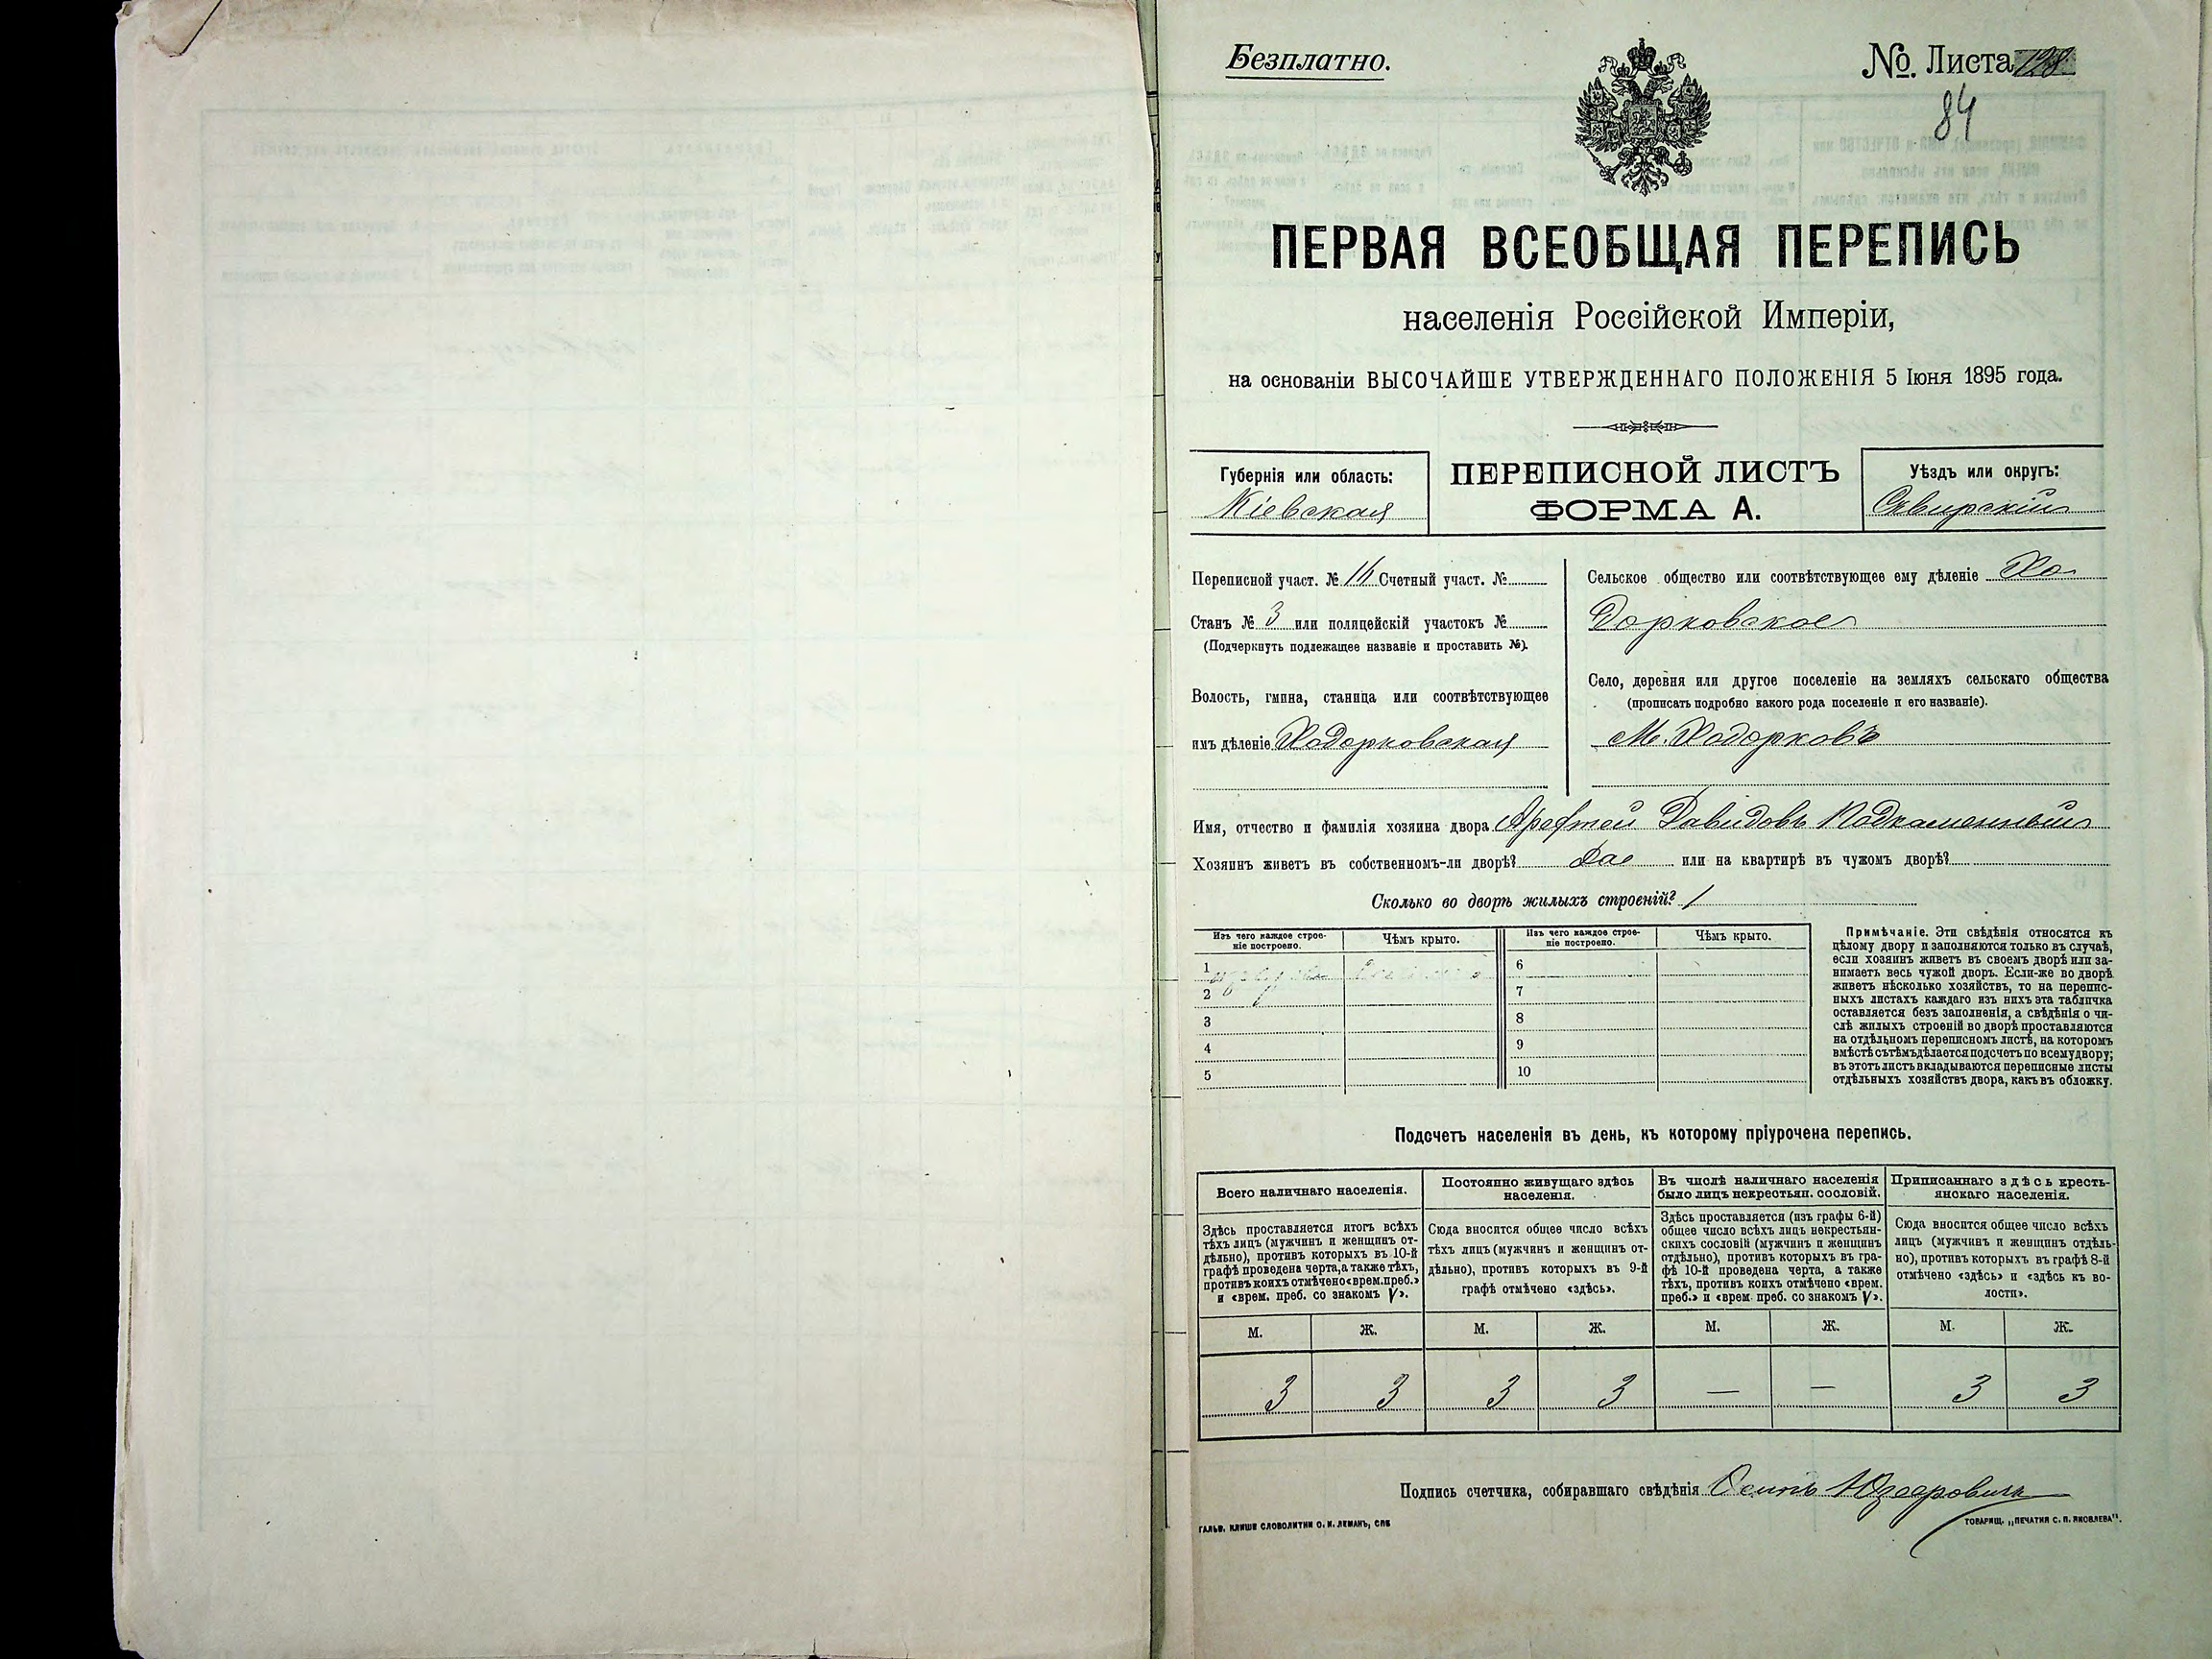 Безплатно.
№. Листа 128
84
ПЕРВАЯ ВСЕОБЩАЯ ПЕРЕПИСЬ
населенія Россійской Имперіи,
на основаніи ВЫСОЧАЙШЕ УТВЕРЖДЕННАГО ПОЛОЖЕНІЯ 5 Іюня 1895 года.
Губернія или область:
Кіевская
ПЕРЕПИСНОЙ ЛИСТЪ
ФОРМА А.
Уѣздъ или округъ:
Сквирскій
Переписной участ. № 14 Счетный участ. №
Станъ № 3 или полицейскій участокъ №
(Подчеркнуть подлежащее названіе и проставить №).
Волость, гмина, станица или соотвѣтствующее
имъ дѣленіе Ходорковская
Сельское общество или соотвѣтствующее ему дѣленіе Хо-
дорковское
Село, деревня или другое поселеніе на земляхъ сельскаго общества
(прописать подробно какого рода поселеніе и его названіе).
М. Ходорковъ
Имя, отчество и фамилія хозяина двора Арефтей Давидовъ Подкаменный
Хозяинъ живетъ въ собственномъ-ли дворѣ? Да или на квартирѣ въ чужомъ дворѣ?
Сколько во дворѣ жилыхъ строеній? 1
Изъ чего каждое строе-
ніе построено.
Чѣмъ крыто.
1
2
3
4
5
Изъ чего каждое строе-
ніе построено.
Чѣмъ крыто.
6
7
8
9
10
Примѣчаніе. Эти свѣдѣнія относятся къ
цѣлому двору и заполняются только въ случаѣ,
если хозяинъ живетъ въ своемъ дворѣ или за-
нимаетъ весь чужой дворъ. Если-же во дворѣ
живетъ нѣсколько хозяйствъ, то на перепис-
ныхъ листахъ каждаго изъ нихъ эта табличка
оставляется безъ заполненія, а свѣдѣнія о чи-
слѣ жилыхъ строеній во дворѣ проставляются
на отдѣльномъ переписномъ листѣ, на которомъ
вмѣстѣ съ тѣмъ дѣлается подсчетъ по всему двору;
въ этотъ листъ вкладываются переписные листы
отдѣльныхъ хозяйствъ двора, какъ въ обложку.
Подсчетъ населенія въ день, къ которому пріурочена перепись.
Всего наличнаго населенія.
Постоянно живущаго здѣсь
населенія.
Въ числѣ наличнаго населенія
было лицъ некрестьян. сословій.
Приписаннаго здѣсь кресть-
янскаго населенія.
Здѣсь проставляется итогъ всѣхъ
тѣхъ лицъ (мужчинъ и женщинъ от-
дѣльно), противъ которыхъ въ 10-й
графѣ проведена черта, а также тѣхъ,
противъ коихъ отмѣчено «врем. преб.»
и «врем. преб. со знакомъ V».
Сюда вносится общее число всѣхъ
тѣхъ лицъ (мужчинъ и женщинъ от-
дѣльно), противъ которыхъ въ 9-й
графѣ отмѣчено «здѣсь».
Здѣсь проставляется (изъ графы 6-й)
общее число всѣхъ лицъ некрестьян-
скихъ сословій (мужчинъ и женщинъ
отдѣльно), противъ которыхъ въ гра-
фѣ 10-й проведена черта, а также
тѣхъ, противъ коихъ отмѣчено «врем.
преб.» и «врем. преб. со знакомъ V».
Сюда вносится общее число всѣхъ
лицъ (мужчинъ и женщинъ отдѣль-
но), противъ которыхъ въ графѣ 8-й
отмѣчено «здѣсь» и «здѣсь къ во-
лости».
М. Ж. М. Ж. М. Ж. М. Ж.
3 3 3 3 — — 3 3
Подпись счетчика, собиравшаго свѣдѣнія Осипъ
ГАЛЬВ. КЛИШЕ СЛОВОЛИТНИ О. И. ЛЕМАНЪ, СПБ
ТОВАРИЩ. „ПЕЧАТНЯ С. П. ЯКОВЛЕВА".